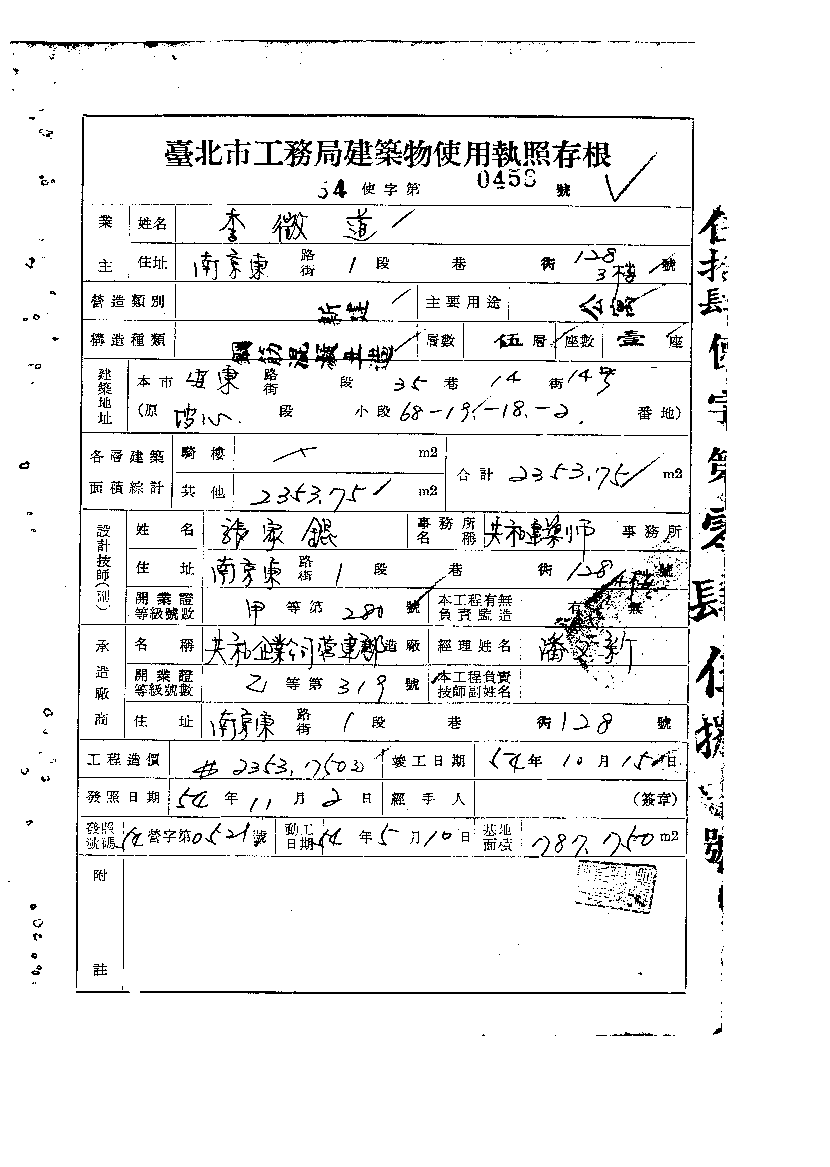 臺北市工務局建築物使用執照存根
54 使字第 0458 號
業主 姓名 李徵道
住址 南京東 路街 1 段 巷 街 128 3樓 號
營造類別 新建 主要用途 公寓
構造種類 鋼筋混凝土造 層數 伍 層 座數 壹 座
建築地址 本市 東 路街 段 35 巷 14 街 14號
(原 坡心 段 小段 68-19.-18.-2. 番地)
各層建築面積綜計 騎樓 m2 合計 2353.75 m2
其他 2353.75 m2
設計技師(副) 姓名 張家錕 事務所名稱 共和建築師 事務所
住址 南京東 路街 1 段 巷 街 128 4樓 號
開業證等級號數 甲 等第 280 號 本工程有無負責監造 有 無
承造廠商 名稱 共和企業公司營建部 造廠 經理姓名 潘文新
開業證等級號數 乙 等第 319 號 本工程負責技師副姓名
住址 南京東 路街 1 段 巷 街 128 號
工程造價 竣工日期 54 年 10 月 15 日
發照日期 54 年 11 月 2 日 經手人 (簽章)
發照號碼 54 營字第 0521 號 動工日期 54 年 5 月 10 日 基地面積 787.750 m2
附註
伍拾肆使字第零肆伍捌號